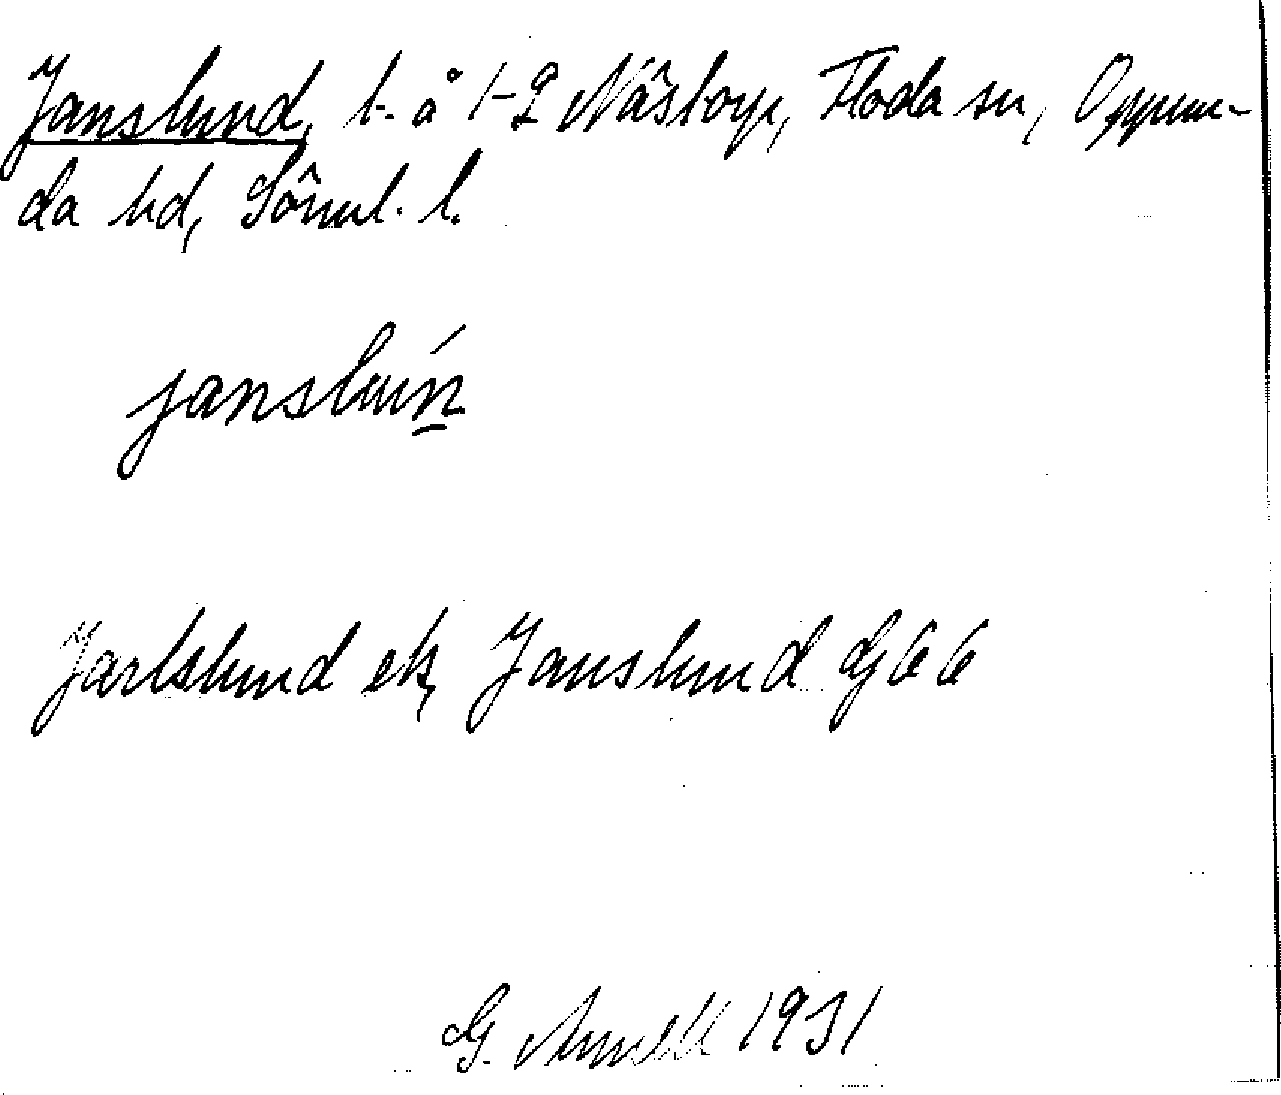 Janslund, t. å 1-2 Nästorp, Floda sn, Oppun-
da hd, Sörml. l.
jansluń̲
Jarlslund ek, Janslund GG 66
G. Annell 1931